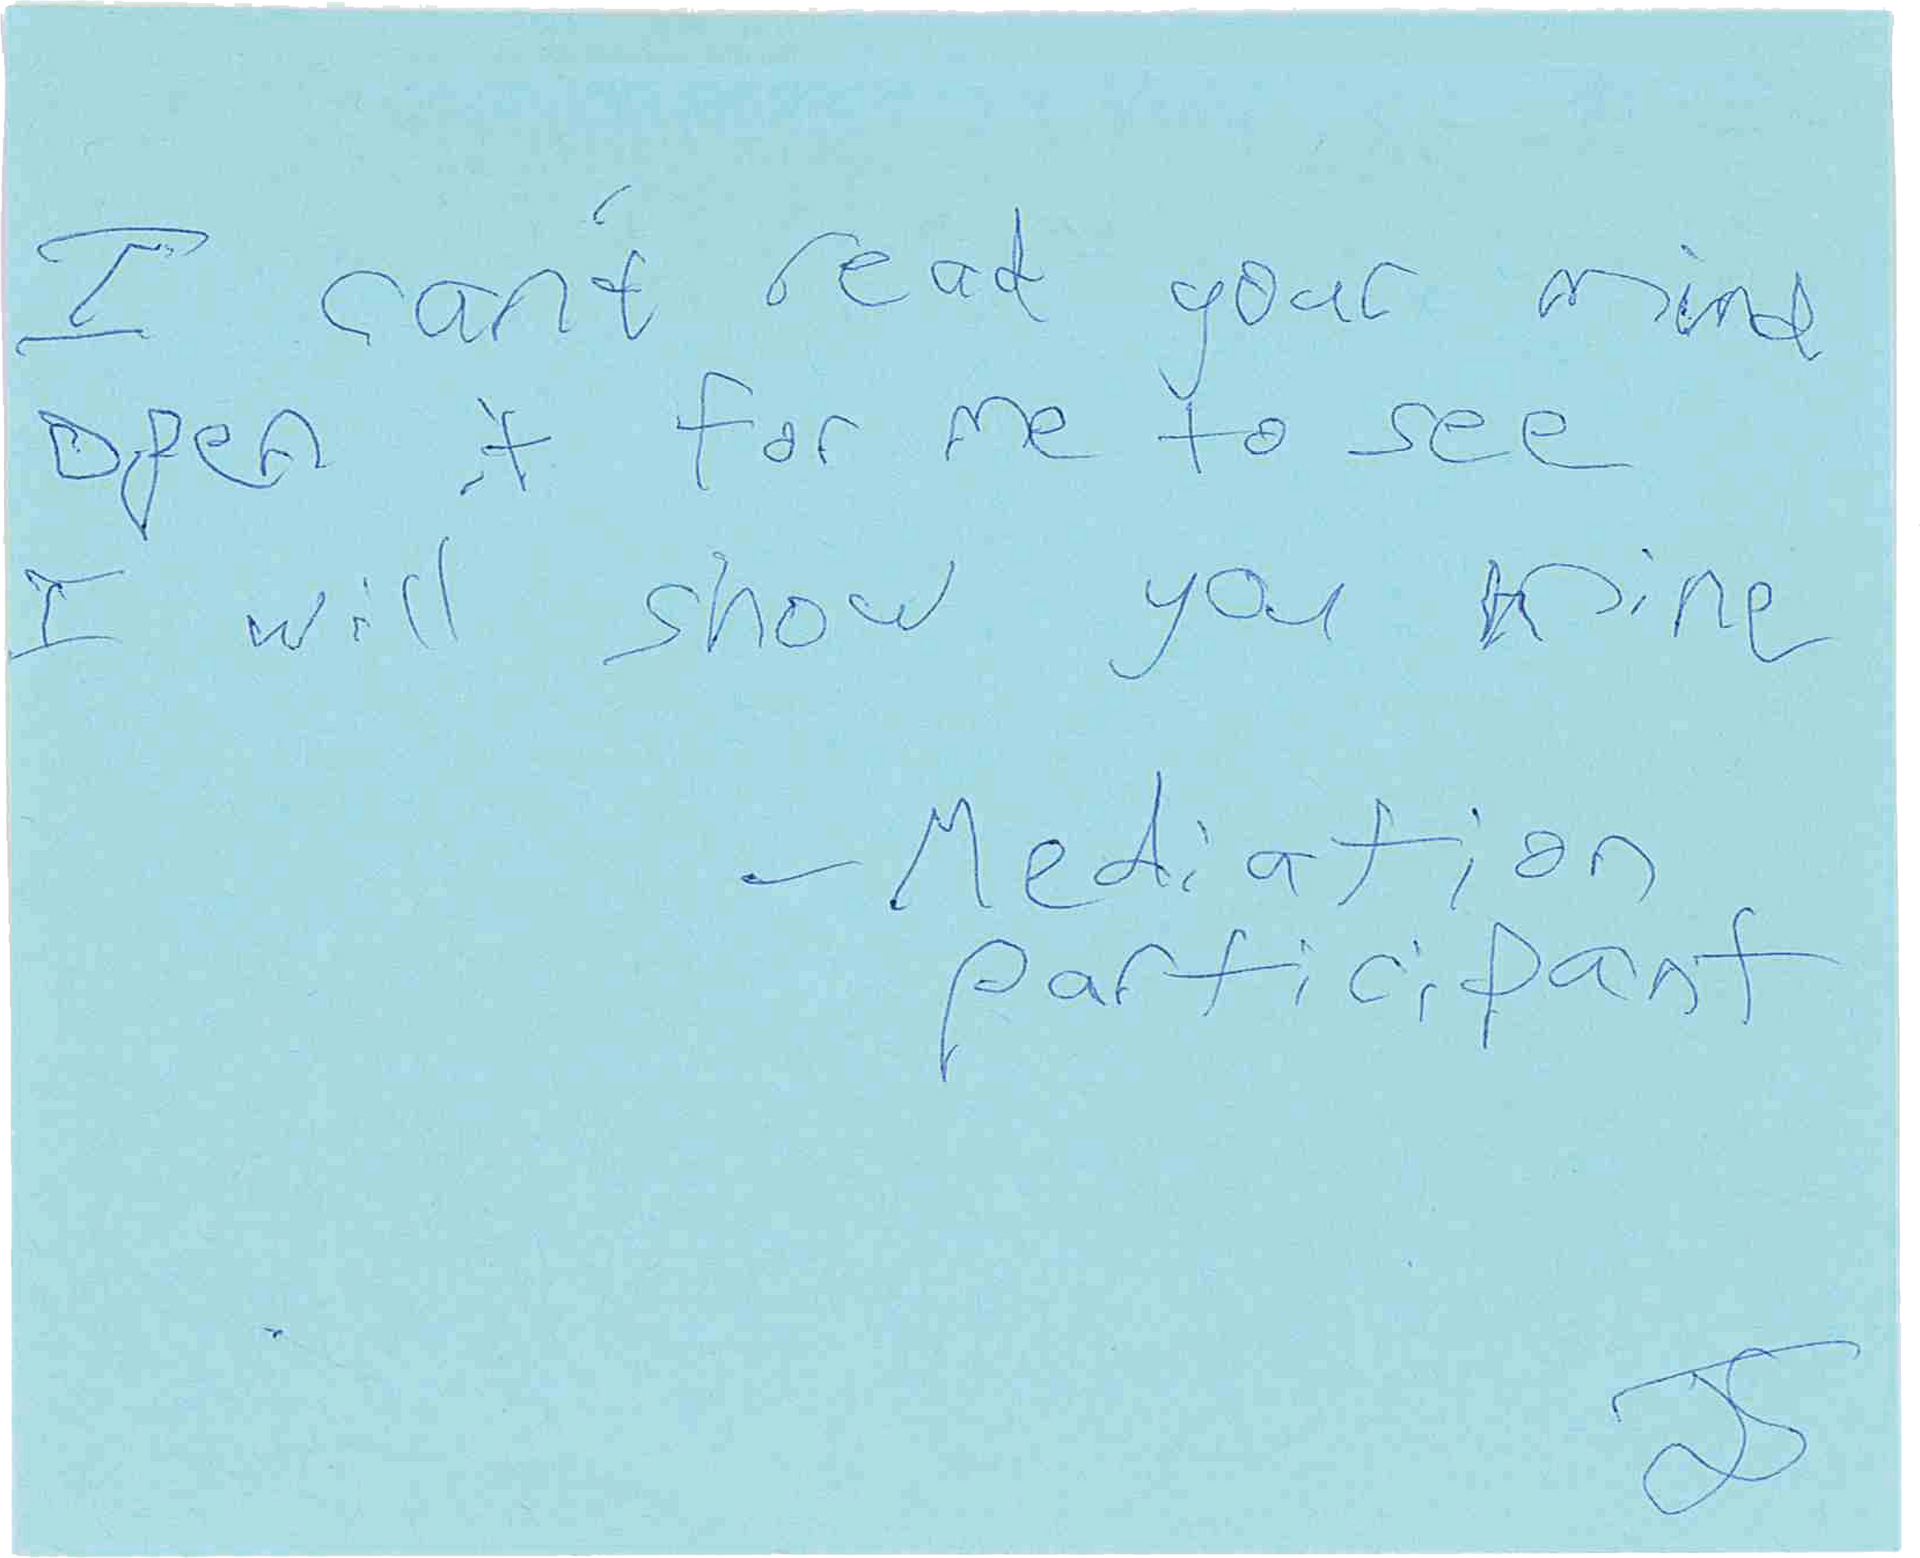 I can't read your mind
open it for me to see
I will show you mine
- Mediation
participant
JS